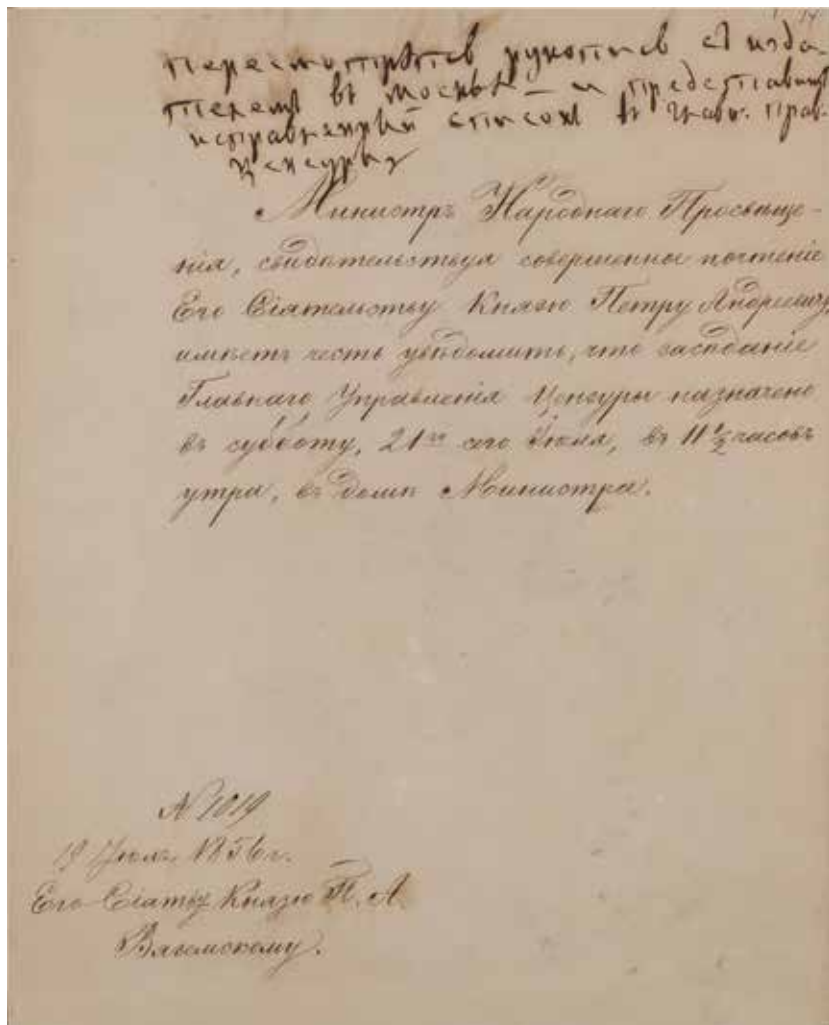 14
пересмотрѣть рукопись съ изда-
телемъ въ Москвѣ — и представить
исправленный списокъ в Глав. Прав.
Ценсуры
Министръ Народнаго Просвѣще-
нія, свидѣтельствуя совершенное почтеніе
Его Сіятельству Князю Петру Андреевичу,
имѣетъ честь увѣдомить, что засѣданіе
Главнаго Управленія Цензуры назначено
въ субботу, 21го сего Іюля, въ 11 1/2 часовъ
утра, въ домѣ Министра.
№ 1019
19 Іюля 1856 г.
Его Сіятву Князю П. А.
Вяземскому.